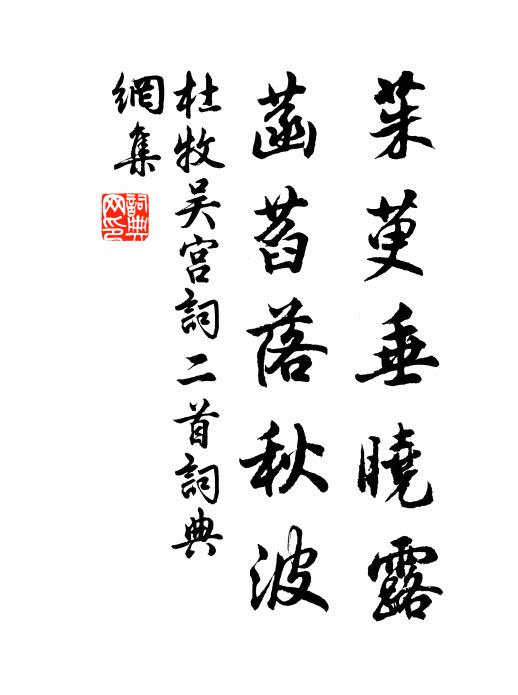 茱萸垂曉露
菡萏落秋波
杜牧吴宫詞二首詞典
網集
詞典网印